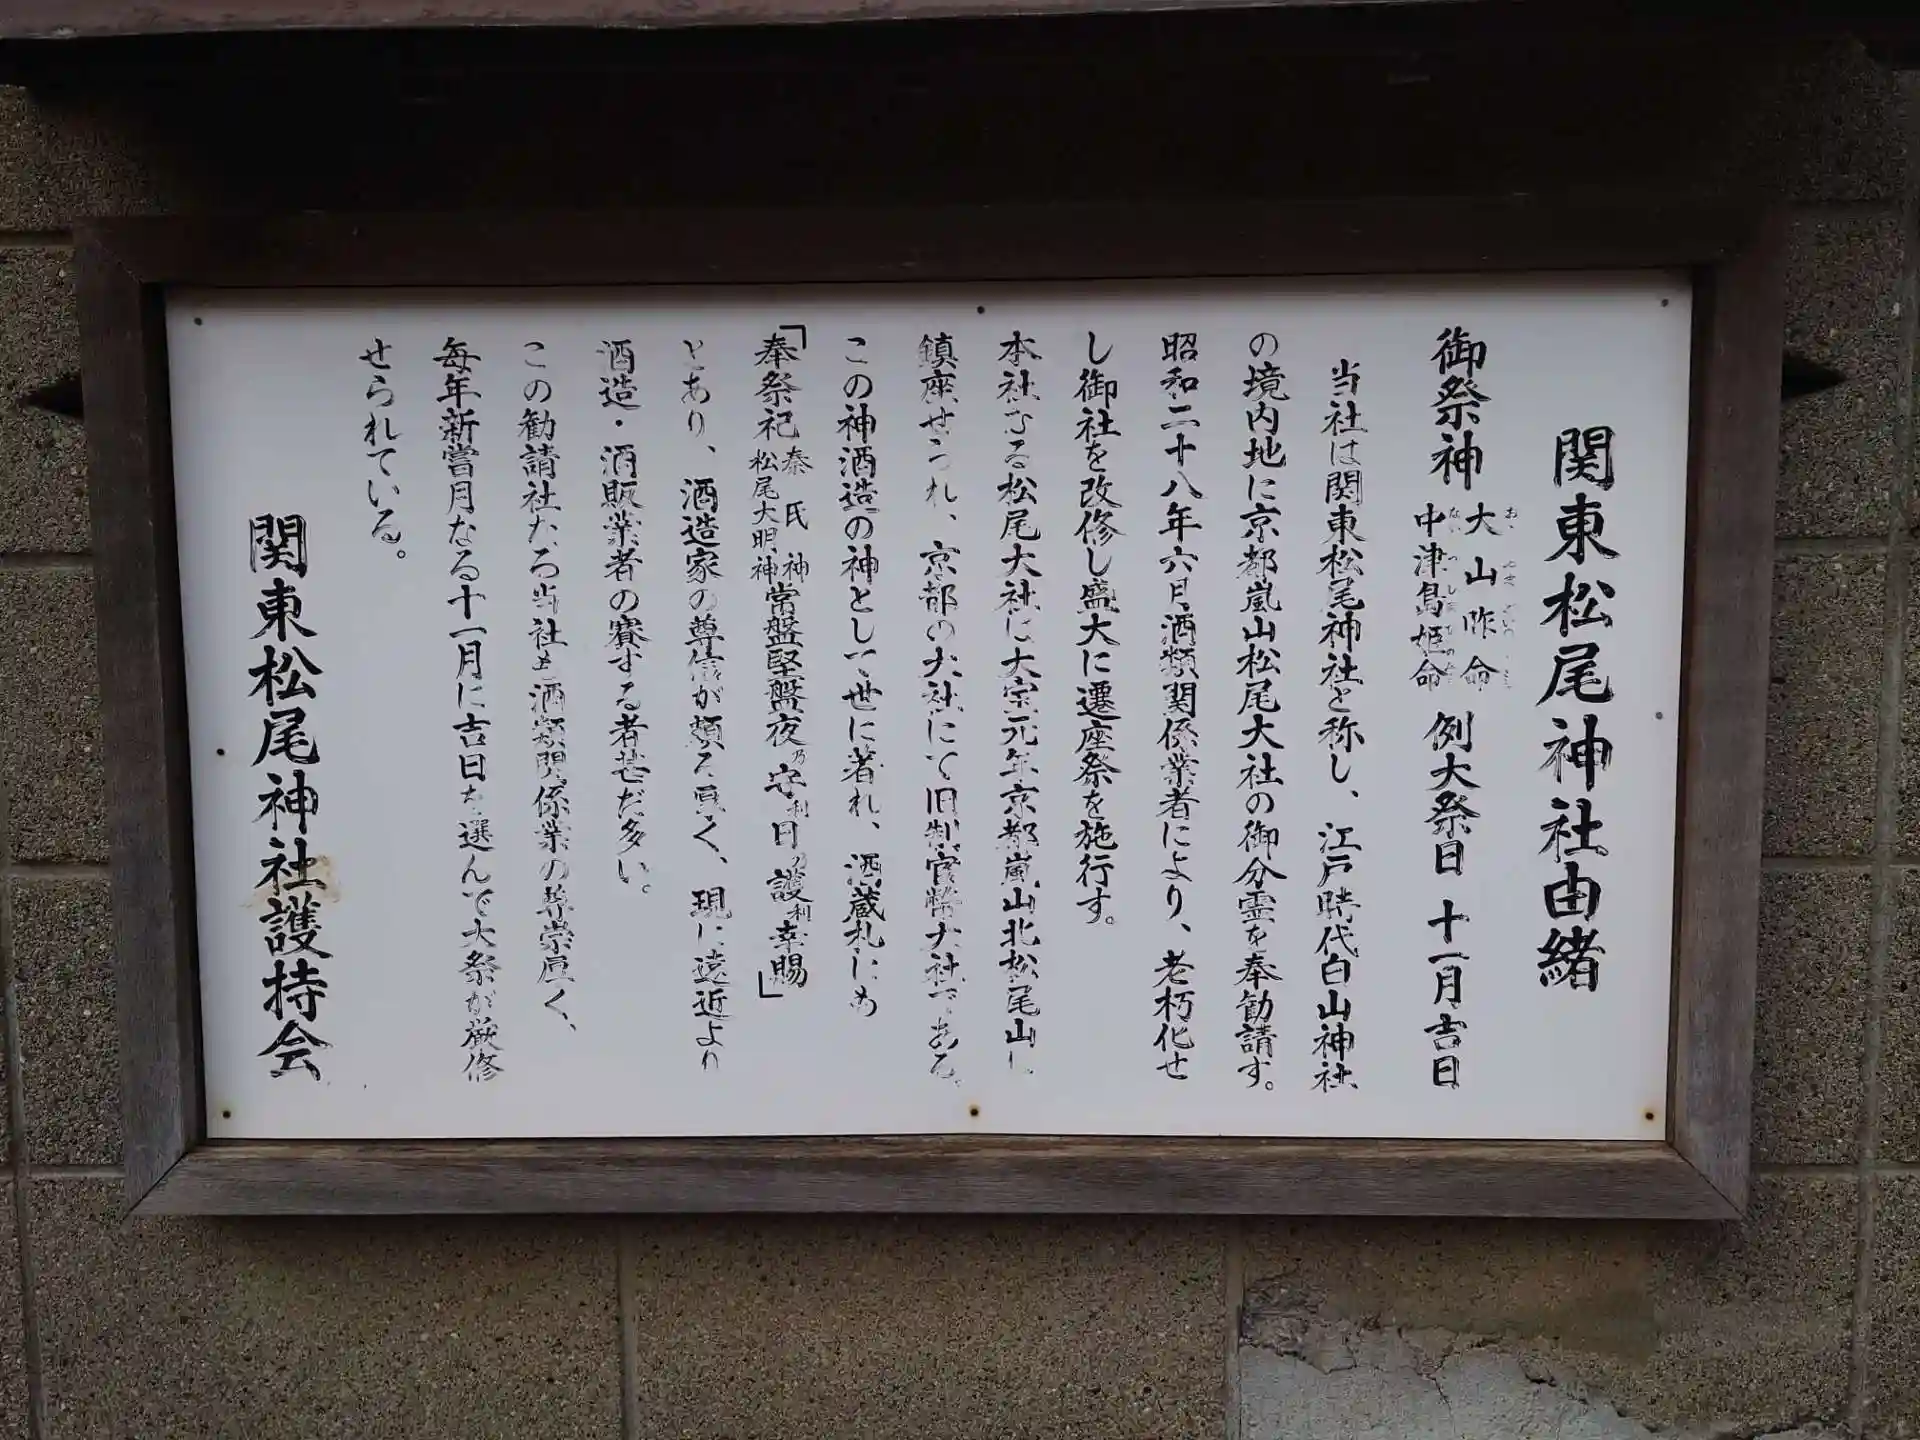 関東松尾神社由緒
御祭神 大山咋命 中津島姫命 例大祭日 十一月吉日
当社は関東松尾神社と称し、江戸時代白山神社
の境内地に京都嵐山松尾大社の御分霊を奉勧請す。
昭和二十八年六月酒類関係業者により、老朽化せ
し御社を改修し盛大に遷座祭を施行す。
本社なる松尾大社は大宗元年京都嵐山北松尾山に
鎮座せられ、京都の大社にて旧制官幣大社である。
この神酒造の神として世に著れ、酒蔵札にあ
「奉祭祀秦氏神松尾大明神常盤堅盤夜乃守利日乃護利幸賜」
とあり、酒造家の尊信が頗る厚く、現に遠近より
酒造・酒販業者の賽する者甚だ多い。
この勧請社たる当社も酒類関係業の尊崇厚く、
毎年新嘗月なる十一月に吉日を選んで大祭が厳修
せられている。
関東松尾神社護持会